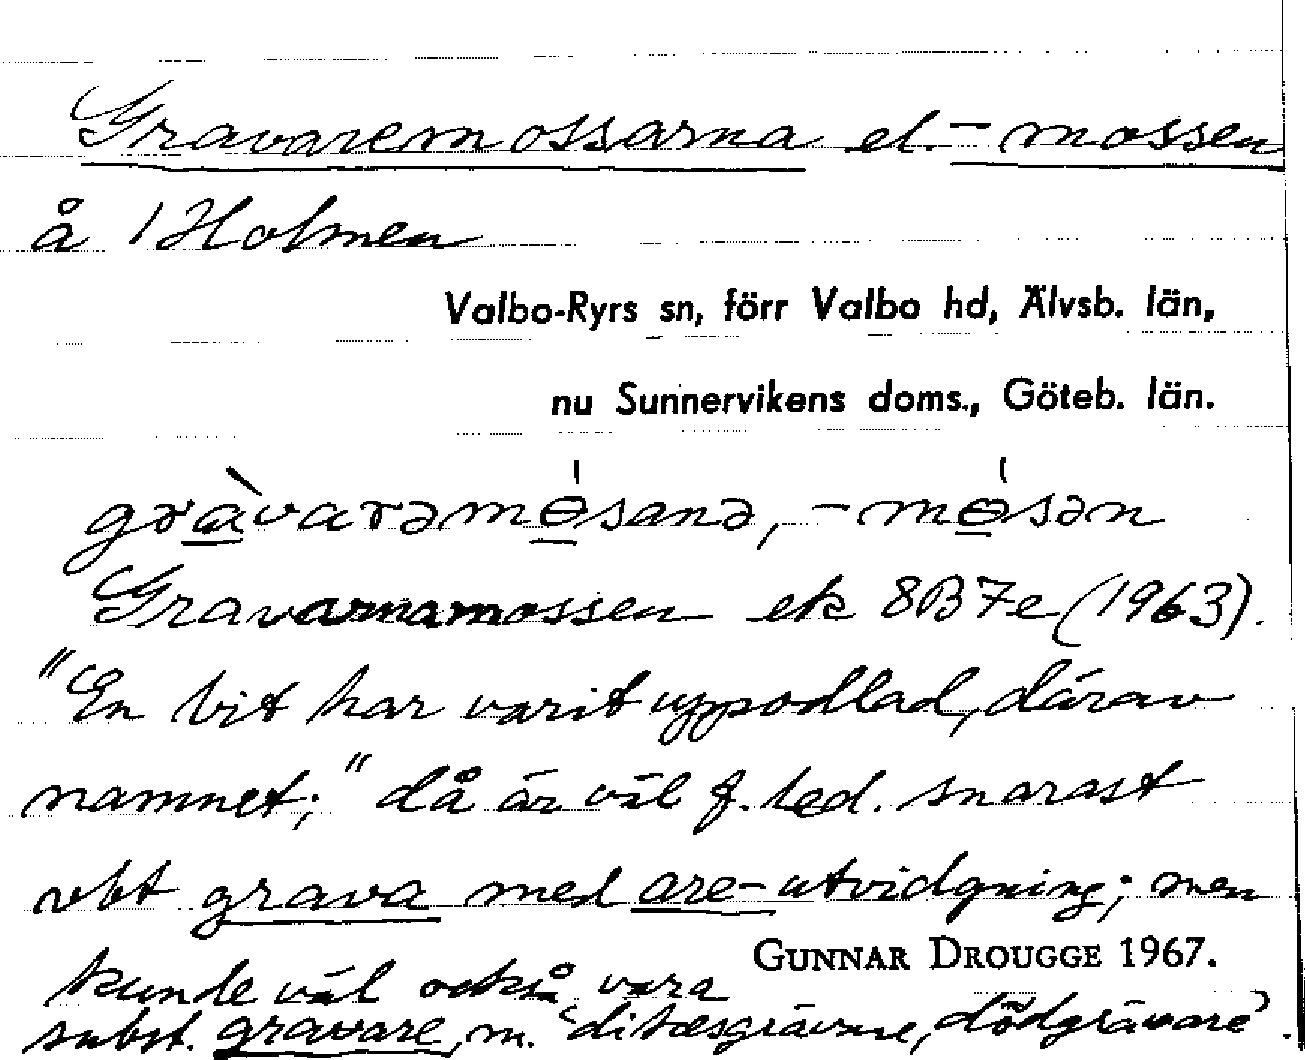 Gravaremossarna el. -mossen
å 1 Holmen
Valbo-Ryrs sn, förr Valbo hd, Älvsb. län,
nu Sunnervikens doms., Göteb. län.
gràvarəmɵ́sanə, -mɵ́sən
Gravarnamossen ek 8B7e (1963).
"En bit har varit uppodlad, därav
namnet;" då är väl f. led. snarast
vbt grava med are-utvidgning; men
GUNNAR DROUGGE 1967.
kunde väl också vara
subst. gravare, m. 'dikesgrävare, dödgrävare'.